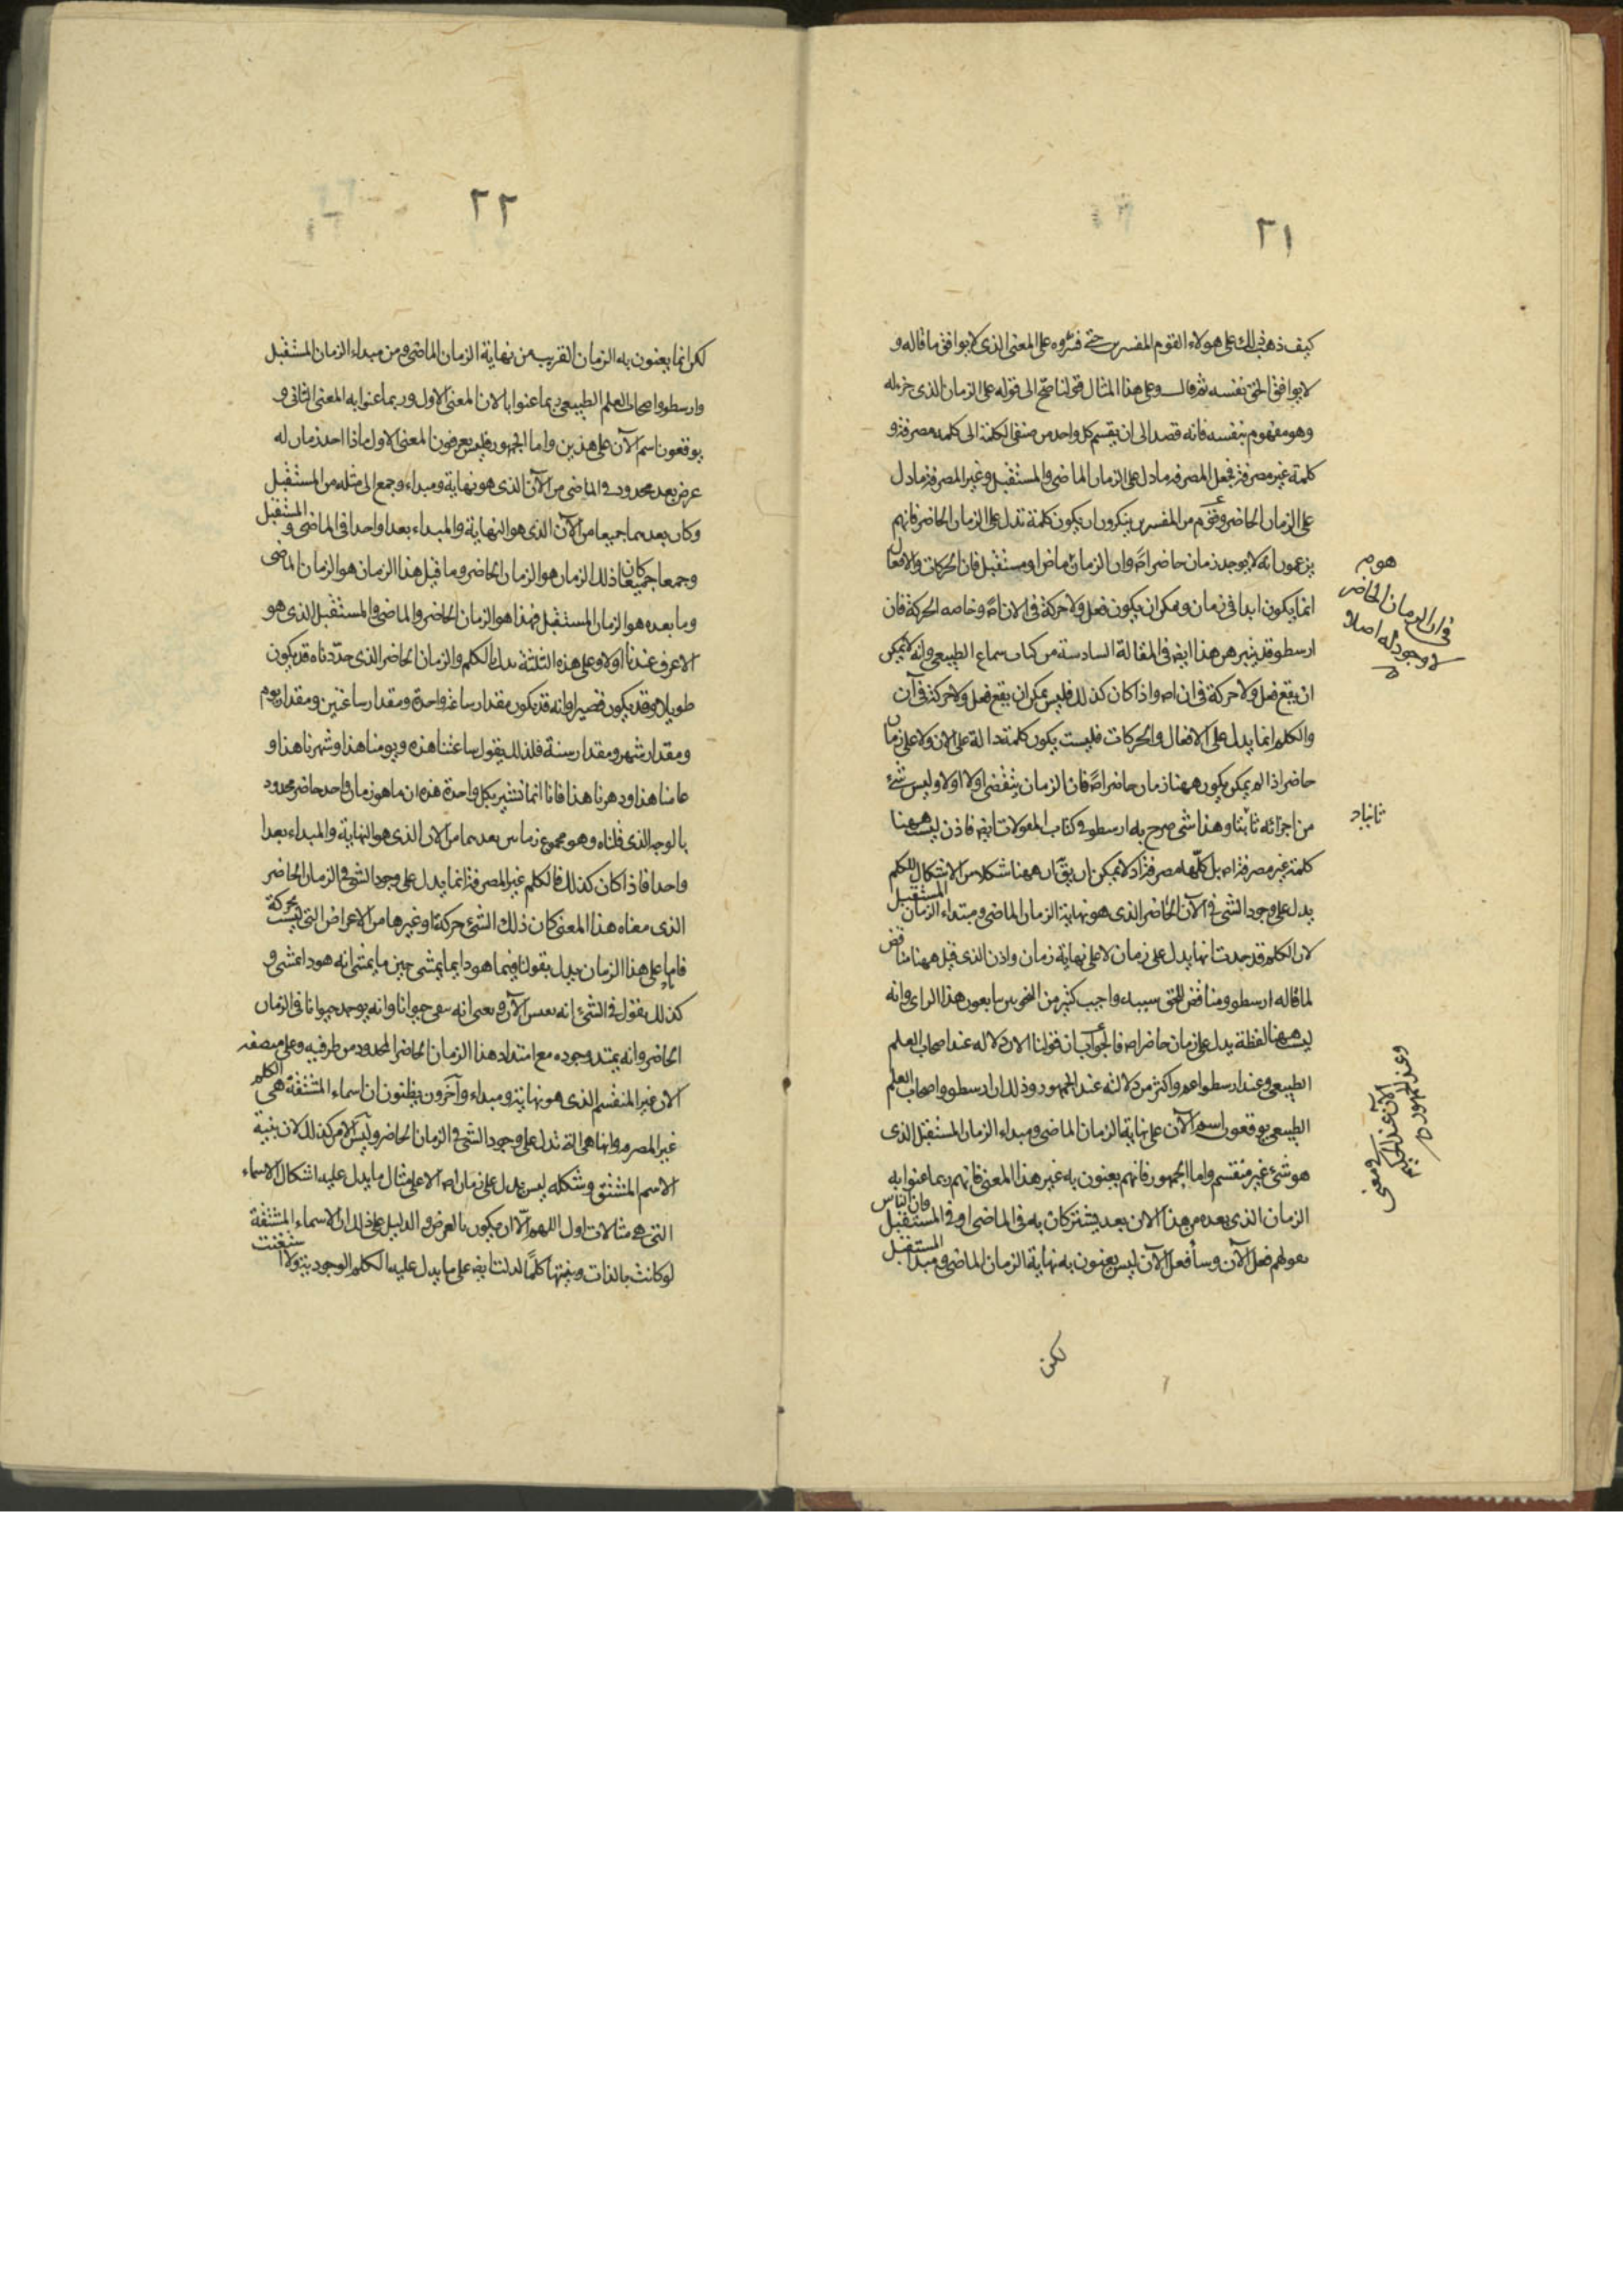 ٢١
كيف ذهب ذلك على هولاء القوم المفسرين حتى فسّروه على المعنى الذى لا يوافق ما قاله و
لا يوافق الحق نفسه ثم قال وعلى هذا المثال قولنا صحّ الى قوله على الزمان الذى حوله
وهو مفهوم بنفسه فانه قصد الى ان يقسم كل واحد من صنفى الكلمة الى كلمة مصرفة و
كلمة غير مصرفة فجعل المصرفة ما دل على الزمان الماضى والمستقبل وغير المصرفة ما دل
على الزمان الحاضر وقوم من المفسرين ينكرون ان يكون كلمة تدل على الزمان الحاضر فانهم
يزعمون انه لا يوجد زمان حاضر اصً وان الزمان ماض او مستقبل فان الحركات والافعال
انما يكون ابدا فى زمان ولا يمكن ان يكون فعل ولا حركة فى الان اصً وخاصه الحركة فان
ارسطو قد بيّن هذا ايضً فى المقالة السادسة من كتاب سماع الطبيعى وانه لا يمكن
ان يقع فعل ولا حركة فى ان اصً واذا كان كذلك فليس يمكن ان يقع فعل ولا حركة فى آن
والكلم انما يدل على الافعال والحركات فليست يكون كلمة دالة على الان ولا على زمان
حاضر اذا لم يمكن يكون ههنا زمان حاضر اصً فان الزمان ينقضى اولا اولا وليس شئ
من اجزائه ثابتا وهذا شى صرح به ارسطو فى كتاب المقولات ايضً فاذن ليست ههنا
كلمة غير مصرفة اصً بل كلّها مصرفة اذ لا يمكن ان يقٓ ان ههنا شكلا من الاشكال للكلم
يدل على وجود الشى فى الآن الحاضر الذى هو نهاية الزمان الماضى ومبتداء الزمان المستقبل
لان الكلم قد حدت انها يدل على زمان لا على نهاية زمان واذن الذى قيل ههنا مناقض
لما قاله ارسطو ومناقض للحق وكثير من النحويين يتابعون هذا الراى وانه
ليست ههنا لفظة يدل على زمان حاضر اصً فالجواب ان قولنا الان دلاله عند اصحاب العلم
الطبيعى وعند ارسطو اعم واكثر من دلالته عند الجمهور وذلك ان ارسطو واصحاب العلم
الطبيعى يوقعون اسم الآن على نهاية الزمان الماضى ومبداء الزمان المستقبل الذى
هو شئ غير منقسم واما الجمهور فانهم يعنون به غير هذا المعنى فانهم ربما عنوا به
الزمان الذى بعده من هذا الان بعد يشتركان به فى الماضى او فى المستقبل فان الناس
بقولهم فعل الآن وسأفعل الآن ليس يعنون به نهاية الزمان الماضى ومبدا المستقبل
لكن
فى ان الزمان الحاضر
لا وجود له اصلا
ومعنى الآن عند الحكيم
وعند الجمهور
٢٢
لكن انما يعنون به الزمان القريب من نهاية الزمان الماضى ومن مبداء الزمان المستقبل
وارسطو واصحاب العلم الطبيعى ربما عنوا بالان المعنى الاول وربما عنوا به المعنى الثانى و
يوقعون اسم الآن على هذين واما الجمهور فليس يعرفون المعنى الاول فاذا اخذ زمان له
عرض بعد محدود فى الماضى من الآن الذى هو نهاية ومبداء وجمع الى مثله من المستقبل
وكان بعدهما جميعا من الآن الذى هو النهاية والمبداء بعدا واحدا فى الماضى والمستقبل
وجمعا جميعا كان ذلك الزمان هو الزمان الحاضر وما قبل هذا الزمان هو الزمان الماضى
وما بعده هو الزمان المستقبل فهذا هو الزمان الحاضر والماضى والمستقبل الذى هو
الاعرف عندنا اولا وعلى هذه الثلثة يدل الكلم والزمان الحاضر الذى حدّدناه قد يكون
طويلا وقد يكون قصيرا وانه قد يكون مقدار ساعة واحدة ومقدار ساعتين ومقدار يوم
ومقدار شهر ومقدار سنة فلذلك يقول ساعتنا هذه ويومنا هذا وشهرنا هذا و
عامنا هذا ودهرنا هذا فانا انما نشير بكل واحدة هذه ان ما هو زمان واحد حاضر محدود
بالوجه الذى قلناه وهو مجموع زمانين بعدهما من الان الذى هو النهاية والمبداء بعدا
واحدا فاذا كان كذلك فالكلم غير المصرفة انما يدل على وجود الشئ فى الزمان الحاضر
الذى معناه هذا المعنى كان ذلك الشئ حركة او غيرها من الاعراض التى ليست بحركة
فانها على هذا الزمان يدل بقولنا فيما هو دايما يمشى حين ما يمشى انه هو ذا يمشى و
كذلك يقول فى الشئ انه يعيش الآن ويعنى انه يبقى حيوانا وانه يوجد حيوانا فى الزمان
الحاضر وانه يمتد وجوده مع امتداد هذا الزمان الحاضر المحدود من طرفيه وعلى منصفه
الان غير المنقسم الذى هو نهاية ومبداء وآخرون يظنون ان اسماء المشتقة هى الكلم
غير المصرفة وانها هى التى تدل على وجود الشئ فى الزمان الحاضر وليس الامر كذلك لان بنية
الاسم المشتق وشكله ليس يدل على زمان اصً الا على مثال ما يدل عليه اشكال الاسماء
التى هى مثالات اول اللهم الّا ان يكون بالعرض والدليل على ذلك ان الاسماء المشتقة
لو كانت بالذات وبنيتها كلمًا لدلت ايضً على ما يدل عليه الكلم الوجودية ولا استغنت